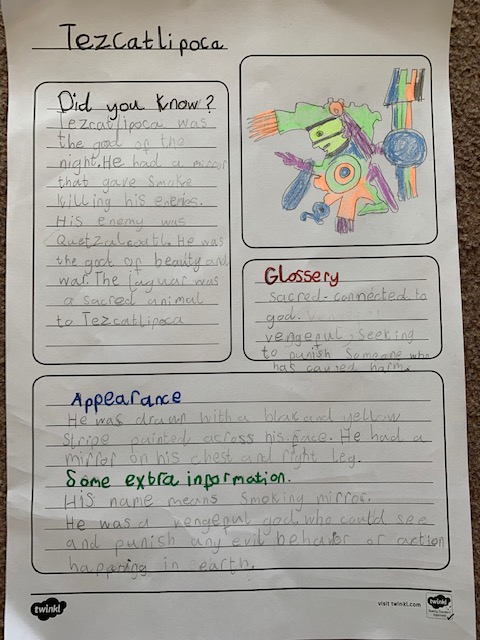 Tezcatlipoca
Did you know?
Tezcatlipoca was
the god of the
night. He had a mirror
that gave smoke
killing his enemes.
His enemy was
Quetzalcoatl. He was
the god of beauty and
war. The jaguar was
a sacred animal
to Tezcatlipoca
Glossery
sacred - connected to
god.
vengeful, seeking
to punish someone who
has caused harm.
Appearance
He was drawn with a blak and yellow
stripe painted across his face. He had a
mirror on his chest and right leg.
Some extra information.
His name means smoking mirror.
He was a vengeful god who could see
and punish any evil behavior or action
happening in earth.
twinkl
visit twinkl.com
twinkl